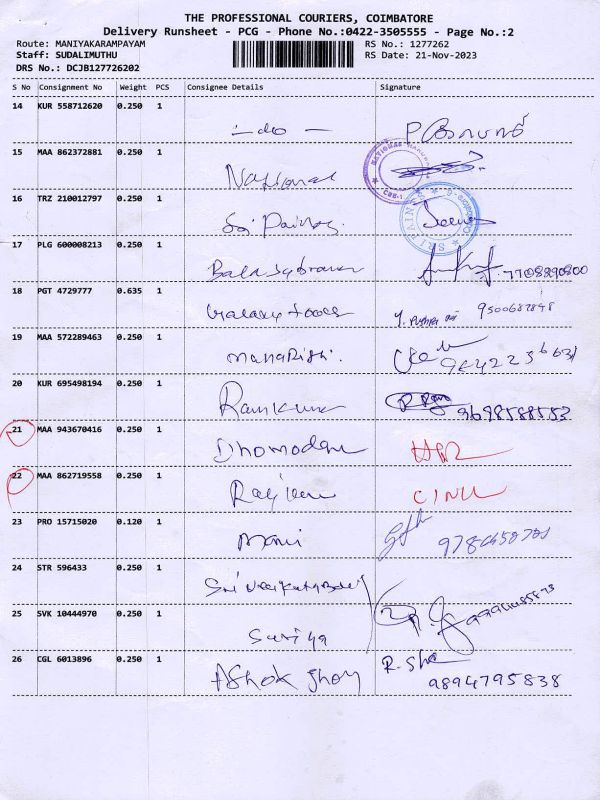 THE PROFESSIONAL COURIERS, COIMBATORE
Delivery Runsheet - PCG - Phone No.:0422-3505555 - Page No.:2
Route: MANIYAKARAMPAYAM RS No.: 1277262
Staff: SUDALIMUTHU RS Date: 21-Nov-2023
DRS No.: DCJB127726202
S No Consignment No Weight PCS Consignee Details Signature
14 KUR 558712620 0.250 1
15 MAA 862372881 0.250 1 National
16 TRZ 210012797 0.250 1 Sri Paines
SRI PAINES
17 PLG 600008213 0.250 1 Balasubraman 7708290800
18 PGT 4729777 0.635 1 Galaxy foods 9500687848
19 MAA 572289463 0.250 1 Maharishi.
20 KUR 695498194 0.250 1 Ramkumar 9698588553
21 MAA 943670416 0.250 1 Dhomodar
22 MAA 862719558 0.250 1
23 PRO 15715020 0.120 1 Mani
24 STR 596433 0.250 1
25 SVK 10444970 0.250 1 Suriya
26 CGL 6013896 0.250 1 Ashok R. Sha
9894795838